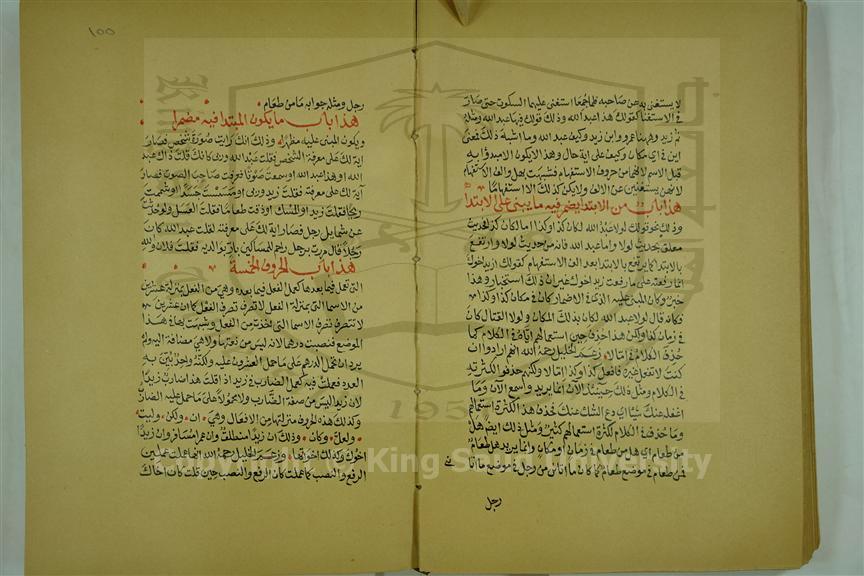 لا يستغنى به عن صاحبه فلما جمعا استغنى عليهما السكوت حتى صار
الاستغناء كقولك هذا عبد الله وذلك قولك فيها عبد الله ومثله
ثم زيد وههنا عمرو واين زيد وكيف عبد الله وما اشبه ذلك فمعنى
اين في اي مكان وكيف على اية حال وهذا لا يكون الا مبدوا به
قبل الاسم لانها من حروف الاستفهام فشبهت بهل والف الاستفهام
لانهن يستغنين عن الالف ولا يكن كذلك الا استفهاما
هذا باب من الابتدا يضمر فيه ما يبنى على الابتدا
وذلك نحو قولك لولا عبد الله لكان كذا وكذا اما لكان كذا فحديث
معلق بحديث لولا واما عبد الله فانه من حديث لولا وارتفع
بالابتدا كما يرتفع بالابتدا بعد الف الاستفهام كقولك ازيد اخوك
انما رفعته على ما رفعت زيد اخوك غير ان ذلك استخبار وهذا
خبر وكان المبنى عليه الذي في الاضمار كان في مكان كذا وكذا
فكانه قال لولا عبد الله كان بذلك المكان ولولا القتال كان
في زمان كذا ولكن هذا حذف حين استعمالهم اياه في الكلام كما
حذف الكلام في امالا زعم الخليل رحمه الله انهم ارادوا ان
كنت لا تفعل غيره فافعل كذا وكذا امالا ولكنهم حذفوه لكثرته
في الكلام ومثل ذلك حينئذ الآن انما يريد واسمع الآن وما
اغفله عنك شيئا اي دع الشك عنك فحذف هذا لكثرة استعمالهم
وما حذف في الكلام لكثرة استعمالهم كثير ومثل ذلك ايضا هل
من طعام اي هل من طعام في زمان او مكان وانما يريد هل طعام
فمن طعام في موضع طعام كما كان ما اتاني من رجل في موضع ما اتاني
رجل
١٥٥
رجل ومثله جوابه ما من طعام
هذا باب ما يكون المبتدا فيه مضمرا
ويكون المبنى عليه مظهرا وذلك انك رايت صورة شخص فصار
اية لك على معرفة الشخص فقلت عبد الله وربي كانك قلت ذاك عبد
الله او هذا عبد الله او سمعت صوتا فعرفت صاحب الصوت فصار
آية لك على معرفته فقلت زيد وربي او مسست جسدا او شممت
ريحا فقلت زيد او المسك او ذقت طعاما فقلت العسل ولو حدثت
عن شمايل رجل فصار اية لك على معرفته لقلت عبد الله كان
رجلا قال مررت برجل راحم المساكين بار بوالديه فقلت فلان والله
هذا باب الحروف الخمسة
التي تعمل فيما بعدها كعمل الفعل فيما بعده وهي من الفعل بمنزلة عشرين
من الاسما التي بمنزلة الفعل لا تصرف تصرف الفعل كما ان عشرين
لا تتصرف تصرف الاسما التي اخذت من الفعل وشبهت بها في هذا
الموضع فنصبت درهما لانه ليس من نعتها ولا هي مضافة اليه ولم
يرد ان تحمل الدرهم على ما حمل العشرون عليه ولكنه واحد بين به
العدد فعملت فيه كعمل الضارب في زيد اذا قلت هذا ضارب زيدا
لان زيدا ليس من صفة الضارب ولا محمولا على ما حمل عليه الضارب
وكذلك هذه الحروف منزلتها من الافعال وهي ان ولكن وليت
ولعل وكان وذلك ان زيدا منطلق وان عمرا مسافر وان زيدا
اخوك وكذلك اخواتها وزعم الخليل رحمه الله انها عملت عملين
الرفع والنصب كما عملت كان الرفع والنصب حين قلت كان اخاك
Copyright © King Saud University
195